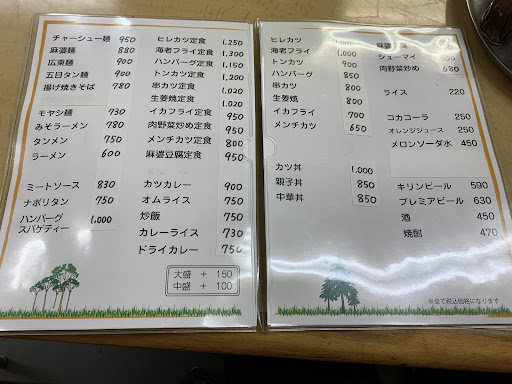 チャーシュー麺 950
麻婆麺 880
広東麺 900
五目タン麺 900
揚げ焼きそば 780
モヤシ麺 730
みそラーメン 780
タンメン 750
ラーメン 600
ミートソース 830
ナポリタン 750
ハンバーグ
スパゲティー 1,000
ヒレカツ定食 1,250
海老フライ定食 1,300
ハンバーグ定食 1,150
トンカツ定食 1,200
串カツ定食
生姜焼定食 1,020
イカフライ定食
肉野菜炒め定食 950
メンチカツ定食 800
麻婆豆腐定食 950
カツカレー 900
オムライス 750
炒飯 750
カレーライス 730
ドライカレー 750
大盛 + 150
中盛 + 100
ヒレカツ 1,000
海老フライ
トンカツ 900
ハンバーグ 850
串カツ 800
生姜焼
イカフライ 700
メンチカツ 650
カツ丼 1,000
親子丼 850
中華丼 850
麻婆
シューマイ
肉野菜炒め 680
ライス 220
コカコーラ 250
オレンジジュース 250
メロンソーダ水 450
キリンビール 590
プレミアビール 630
酒 450
焼酎 470
※全て税込価格になります